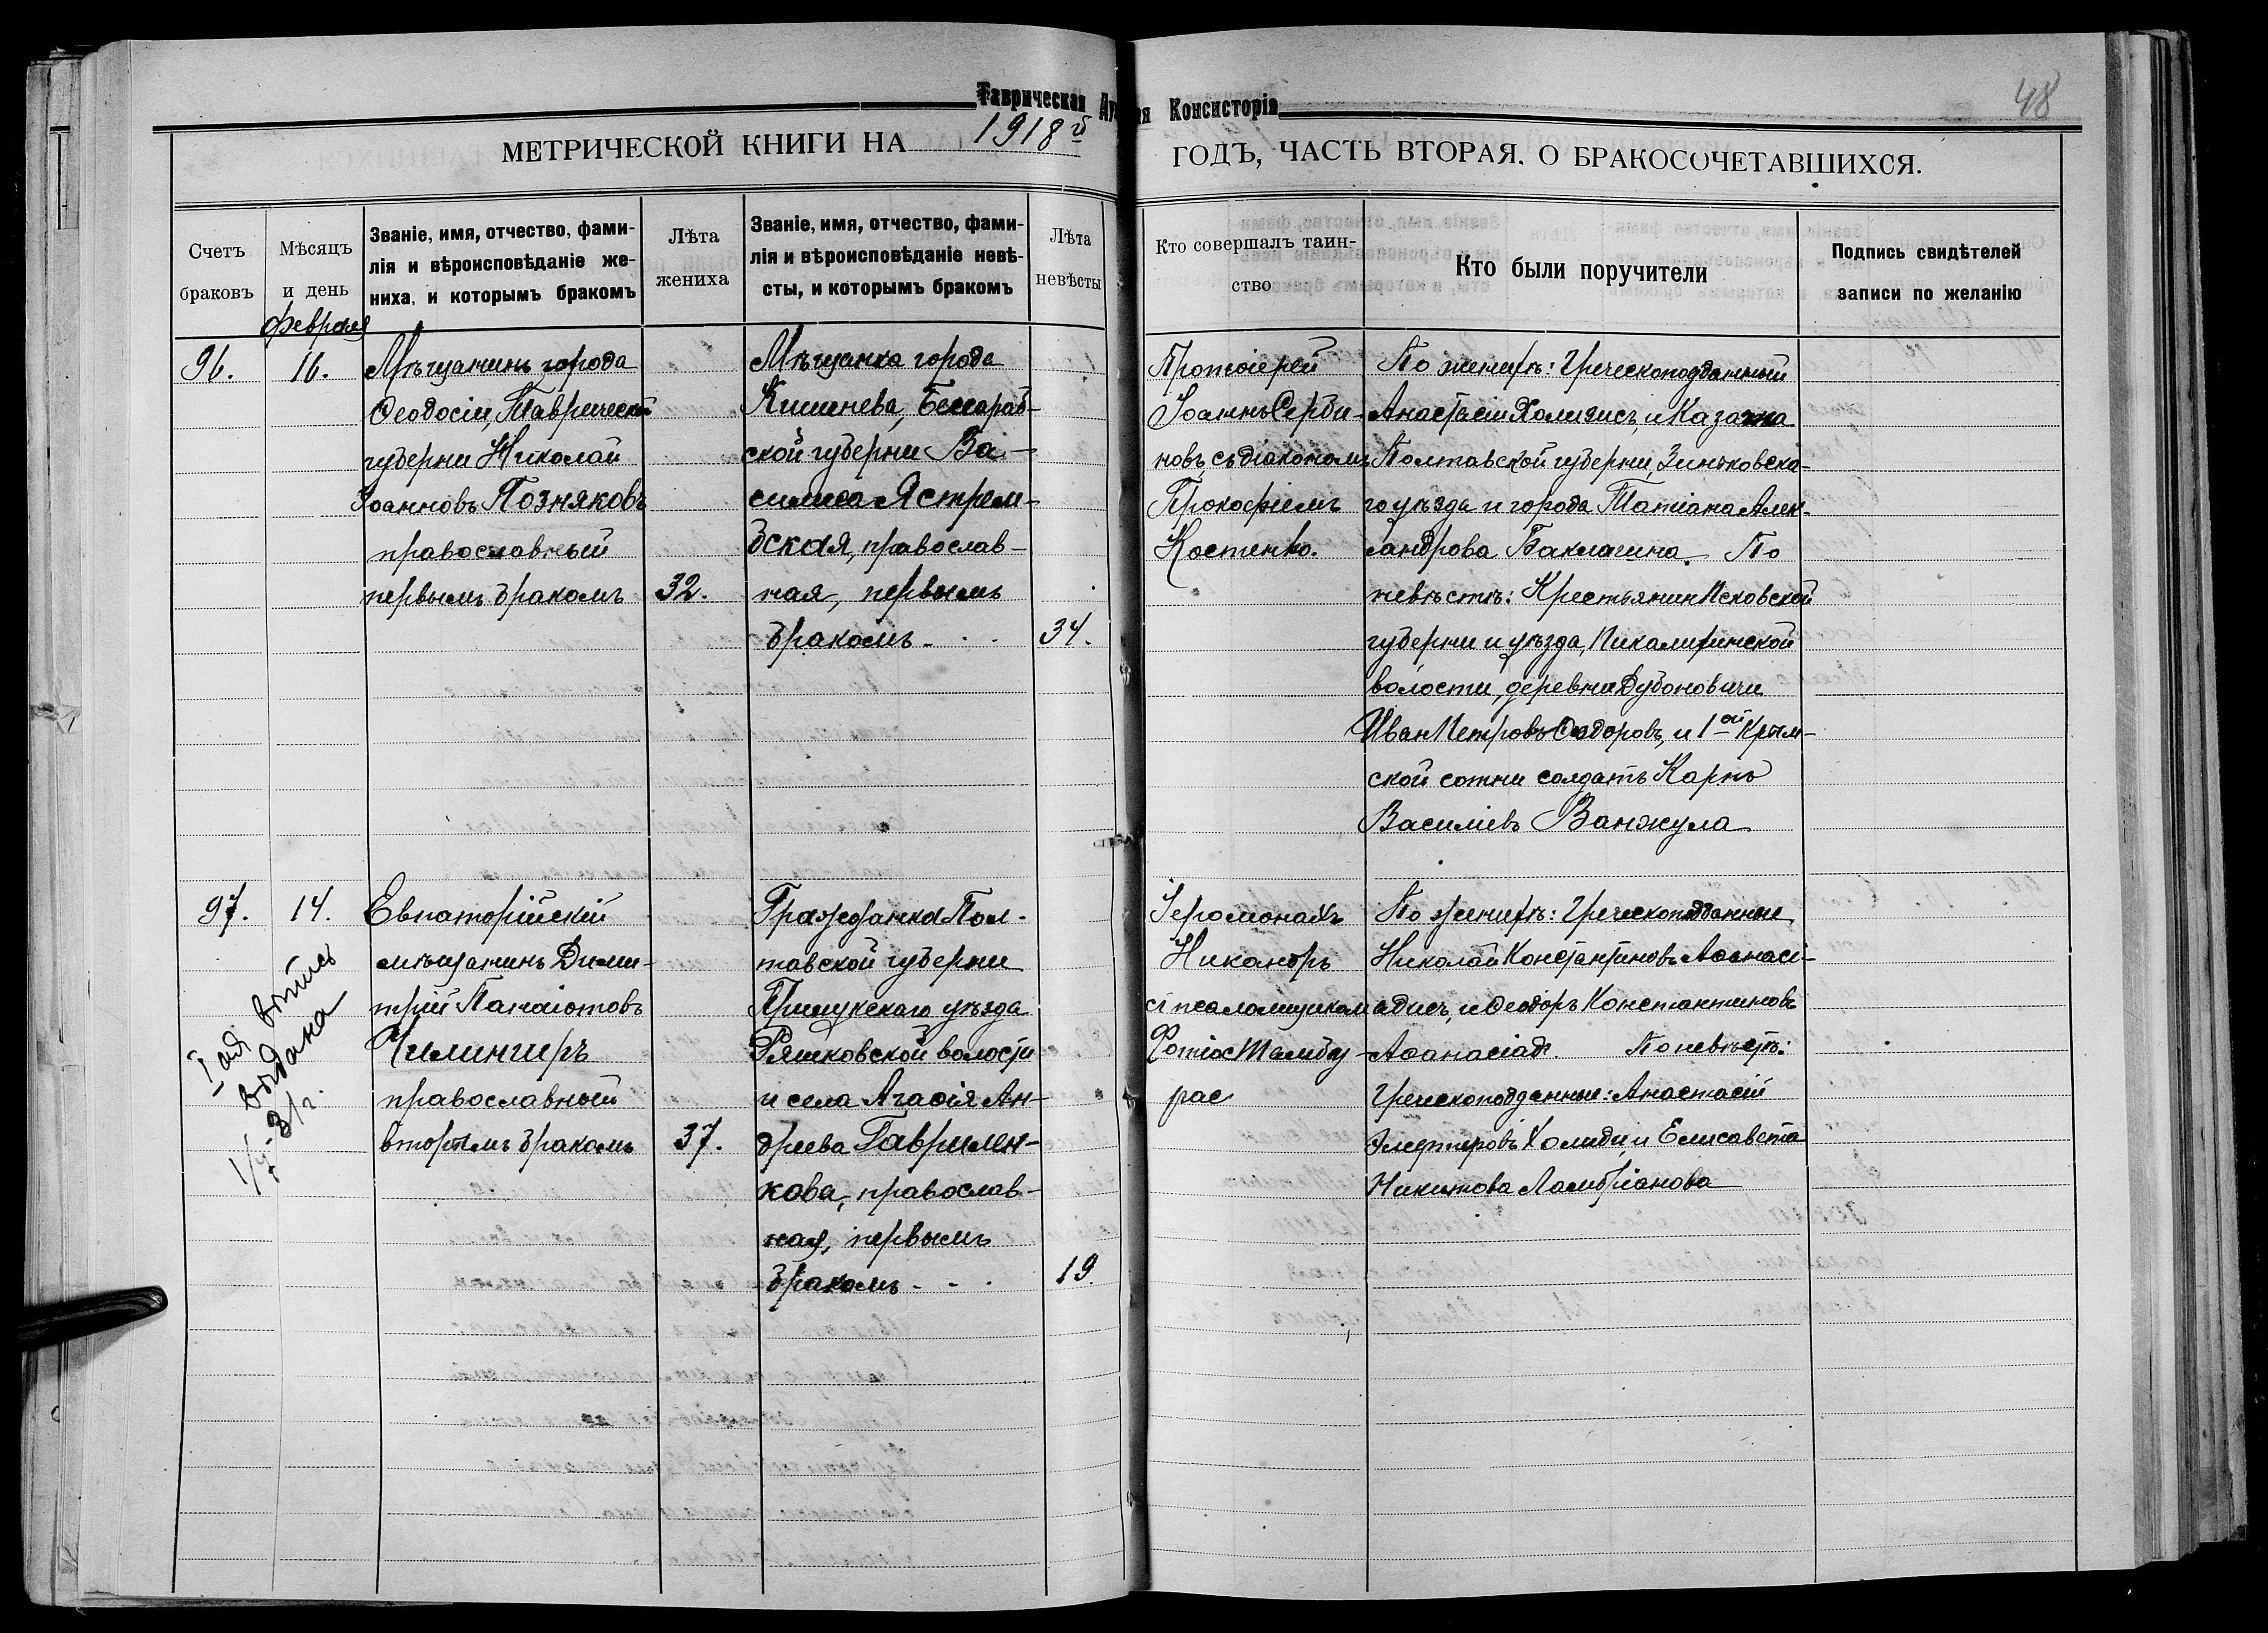 Таврическая Ду
ая Консисторія
48
МЕТРИЧЕСКОЙ КНИГИ НА 1918й
ГОДЪ, ЧАСТЬ ВТОРАЯ. О БРАКОСОЧЕТАВШИХСЯ.
Счетъ
браковъ
Мѣсяцъ
и день
Званіе, имя, отчество, фами-
лія и вѣроисповѣданіе же-
ниха, и которымъ бракомъ
Лѣта
жениха
Званіе, имя, отчество, фами-
лія и вѣроисповѣданіе невѣ-
сты, и которымъ бракомъ
Лѣта
невѣсты
Кто совершалъ таин-
ство
Кто были поручители
Подпись свидѣтелей
записи по желанію
Февраля
96.
16.
Мѣщанинъ города
Ѳеодосіи, Таврической
губерніи Николай
Іоанновъ Позняковъ
православный
первымъ бракомъ
32.
Мѣщанка города
Кишинева, Бессараб-
ской губерніи Ва-
силиса Ястрем-
бская, православ-
ная, первымъ
бракомъ - . .
34.
Протоіерей
Іоаннъ Серби-
новъ, съ діакономъ
Прокофіемъ
Костенко.
По женихѣ: Греческоподданный
Анастасій Халиписъ, и Казачка
Полтавской губерніи, Зиньковска-
го уѣзда и города Татіана Алек-
сандрова Баклагина. По
невѣстѣ: Крестьянин Псковской
губерніи и уѣзда, Пикалихинской
волости, деревни Дубоновичи
Иван Петровъ Ѳадоровъ, и 1ой Крым-
ской сотни солдатъ Карпъ
Василіевъ Ванжула
97.
14.
Iая выпись
выдана
1/V-31 г.
Евпаторійскій
мѣщанинъ Дими-
трій Панаіотовъ
Чилингиръ
православный
вторымъ бракомъ
37.
Гражданка Пол-
тавской губерніи
Прилукскаго уѣзда
Ряшковской волости
и села Агафія Ан-
дреева Гаврилен-
кова, православ-
ная, первымъ
бракомъ - - .
19.
Іеромонахъ
Никаноръ
съ псаломщикам
Фотіос Шамбу-
рас
По женихѣ: Греческоподданные
Николай Константиновъ Аѳанасі-
адисъ, и Ѳеодоръ Константиновъ
Аѳанасіадi. По невѣстѣ:
Греческоподданные: Анастасій
Элефтеровъ Халиди, и Елисавета
Никитова Ламбріанова